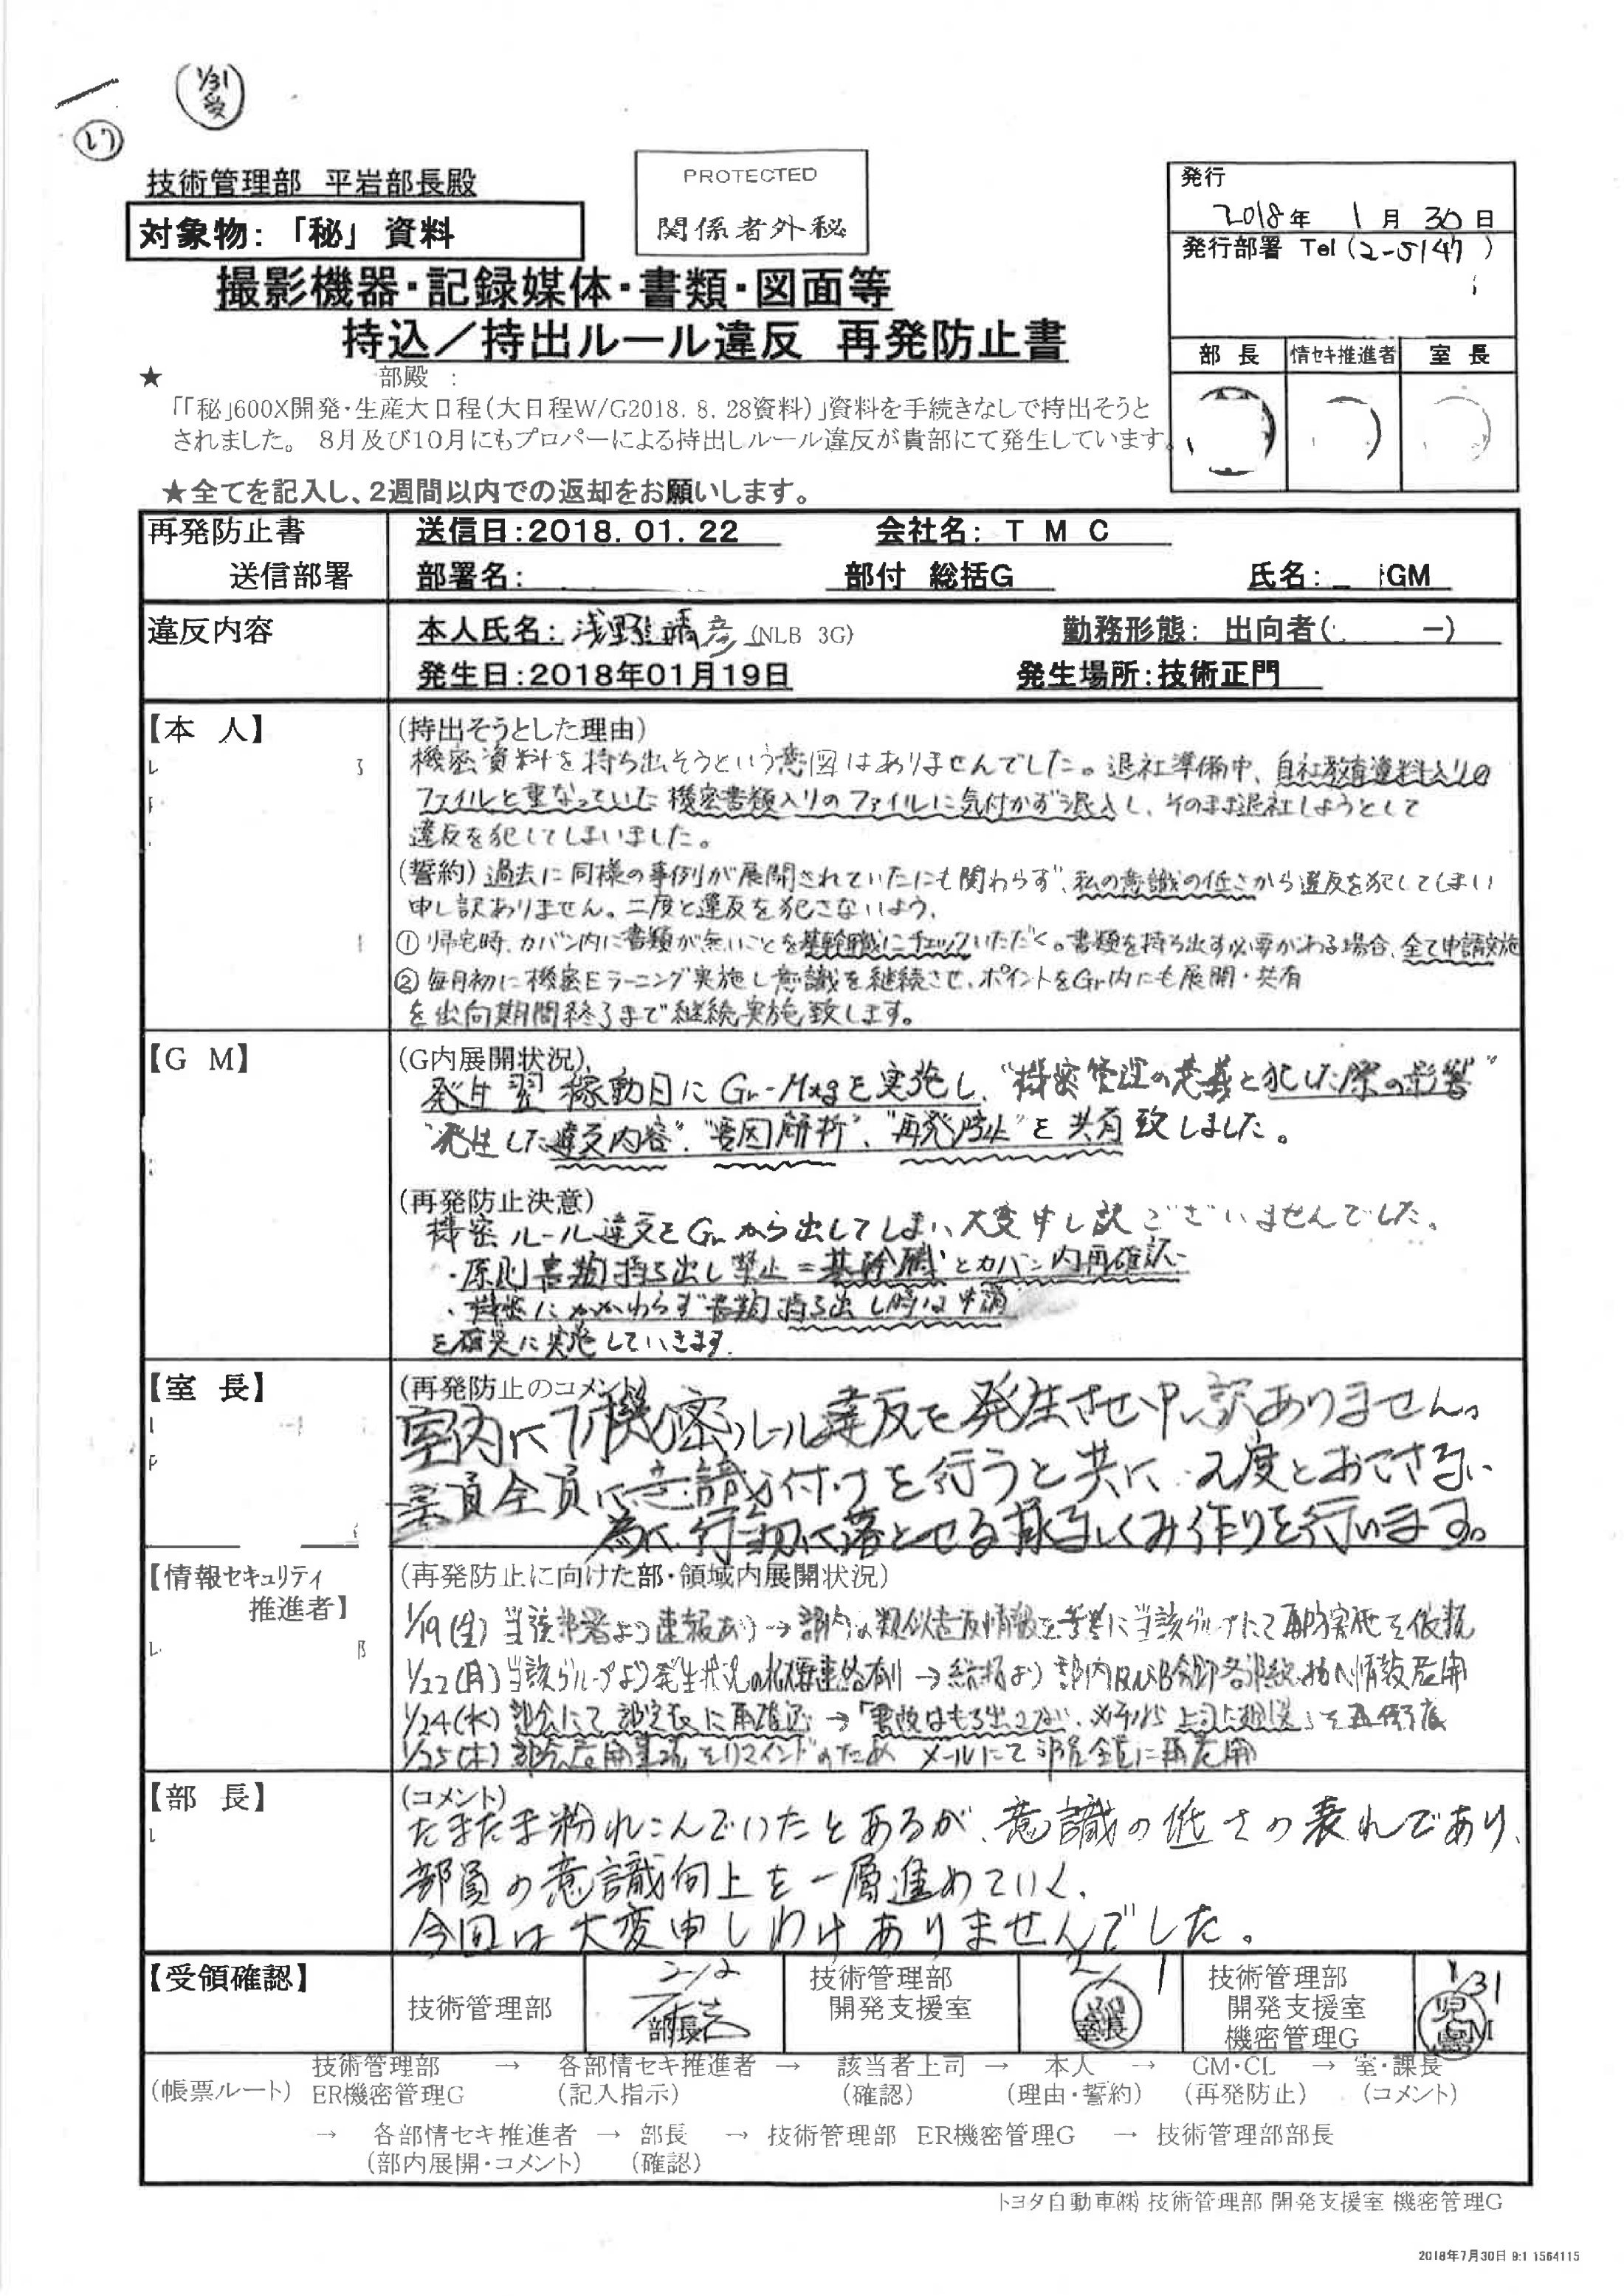 1/31
受
技術管理部 平岩部長殿
対象物：「秘」資料
PROTECTED
関係者外秘
発行
2018年 1月 30日
発行部署 Tel (2-5147)
部 長 情セキ推進者 室 長
撮影機器・記録媒体・書類・図面等
持込／持出ルール違反 再発防止書
★ 部殿 ：
「「秘」600X開発・生産大日程(大日程W/G2018. 8. 28資料)」資料を手続きなしで持出そうと
されました。 8月及び10月にもプロパーによる持出しルール違反が貴部にて発生しています。
★全てを記入し、2週間以内での返却をお願いします。
再発防止書
送信部署
送信日：2018. 01. 22 会社名： T M C
部署名： 部付 総括G 氏名： GM
違反内容
本人氏名： 浅野 晴彦 (NLB 3G) 勤務形態： 出向者( ー)
発生日：2018年01月19日 発生場所：技術正門
【本 人】
(持出そうとした理由)
機密資料を持ち出そうという意図はありませんでした。退社準備中、自社教育資料入りの
ファイルと重なっていた機密書類入りのファイルに気付かず混入し、そのまま退社しようとして
違反を犯してしまいました。
(誓約) 過去に同様の事例が展開されていたにも関わらず、私の意識の低さから違反を犯してしまい
申し訳ありません。二度と違反を犯さないよう、
① 帰宅時、カバン内に書類が無いことを基幹職にチェックいただく。書類を持ち出す必要がある場合、全て申請実施
② 毎月初に機密Eラーニング実施し意識を継続させ、ポイントをGr内にも展開・共有
を出向期間終了まで継続実施致します。
【G M】
(G内展開状況)
発生翌稼動日にGr-Mtgを実施し、“機密管理の意義と犯した際の影響”
“発生した違反内容”、“要因解析”、“再発防止”を共有致しました。
(再発防止決意)
機密ルール違反をGrから出してしまい、大変申し訳ございませんでした。
・原則書類持ち出し禁止＝基幹職とカバン内再確認
・機密にかかわらず書類持ち出し時は申請
を確実に実施していきます。
【室 長】
(再発防止のコメント)
室内にて機密ルール違反を発生させ申し訳ありません。
室員全員に意識付けを行うと共に、2度とおこさない
為に、行動に落とせる様なしくみ作りを行います。
【情報セキュリティ
推進者】
(再発防止に向けた部・領域内展開状況)
1/19(金) 当該 より速報あり→部内の類似違反情報を に当該グループにて再防実施を依頼
1/22(月) 当該グループより発生状況の 連絡有り → 総括より部内及び 情報展開
1/24(水) 部会にて部室長に再確認 → 「書類はもち出さない、必ず 上司に 」を再徹底
1/25(木) 部会展開 をリマインドのため メールにて部員全員に再展開
【部 長】
(コメント)
たまたま粉れこんでいたとあるが、意識の低さの表れであり、
部員の意識向上を一層進めていく。
今回は大変申しわけありませんでした。
【受領確認】
技術管理部
2/2
部長
技術管理部
開発支援室
2/1
室長
技術管理部
開発支援室
機密管理G
1/31
GM
(帳票ルート) 技術管理部 → 各部情セキ推進者 → 該当者上司 → 本人 → GM・CL → 室・課長
ER機密管理G (記入指示) (確認) (理由・誓約) (再発防止) (コメント)
→ 各部情セキ推進者 → 部長 → 技術管理部 ER機密管理G → 技術管理部部長
(部内展開・コメント) (確認)
トヨタ自動車㈱ 技術管理部 開発支援室 機密管理G
2018年7月30日 9:1 1564115